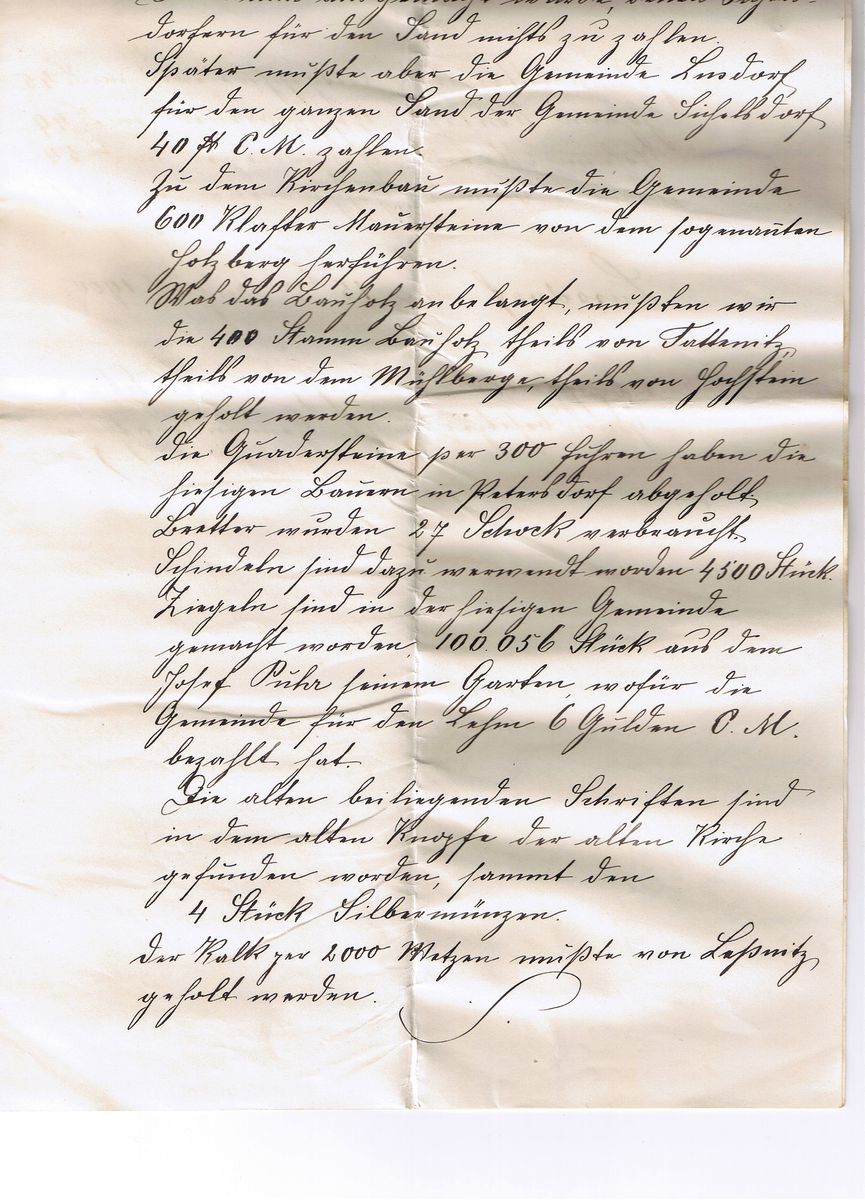 dorfern für den Sand nichts zu zahlen.
Später mußte aber die Gemeinde Lusdorf
für den ganzen Sand der Gemeinde Sichelsdorf
40 fl C. M. zahlen.
Zu dem Kirchenbau mußte die Gemeinde
600 Klafter Mauersteine von dem sogenannten
Holzberg herführen.
Was das Bauholz anbelangt, mußten wir
die 400 Stamm Bauholz theils von Tattenitz,
theils von dem Mühlberge, theils von Hochstein
geholt werden.
die Quadersteine per 300 Fuhren haben die
hiesigen Bauern in Petersdorf abgeholt.
Bretter wurden 27 Schock verbraucht.
Schindeln sind dazu verwendt worden 4500 Stück.
Ziegeln sind in der hiesigen Gemeinde
gemacht worden, 100.056 Stück aus dem
Josef seinem Garten, wofür die
Gemeinde für den Lehm 6 Gulden C. M.
bezahlt hat.
Die alten beiliegenden Schriften sind
in dem alten Knopfe der alten Kirche
gefunden worden, sammt den
4 Stück Silbermünzen.
Der Kalk per 2000 Metzen mußte von Leßnitz
geholt werden.